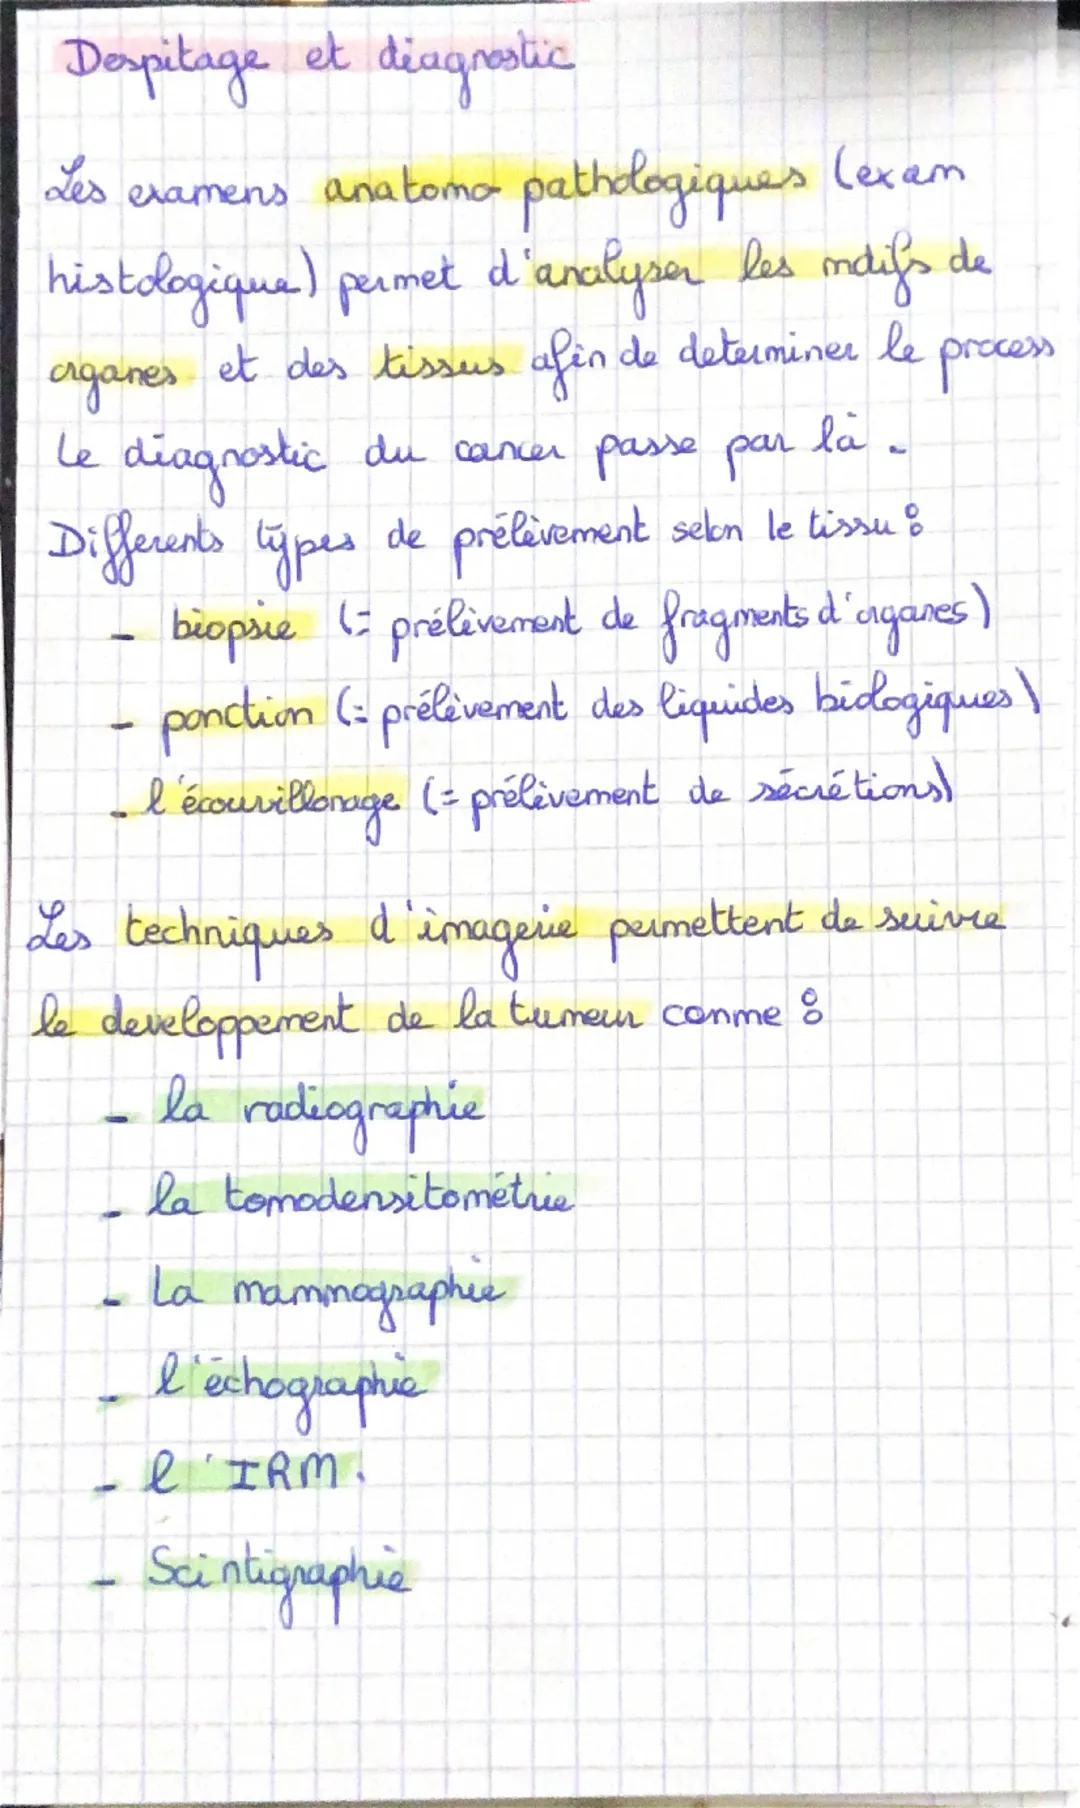 Despitage et diagnostic
Les examens anatomo pathologiques (exam
histologique) permet d'analyser les mdifs de
organes et des tissus afin de determiner le process
Le diagnostic du cancer passe par là.
Differents types de prélèvement selon le tissu :
- biopsie (= prélèvement de fragments d'organes)
- ponction (= prélèvement des liquides biologiques)
- l'écouvillonage (= prélèvement de sécrétions)
Les techniques d'imagerie permettent de suivre
le developpement de la tumeur comme :
- la radiographie
- la tomodensitométrie
- La mammographie
- l'échographie
- l'IRM.
- Scintigraphie